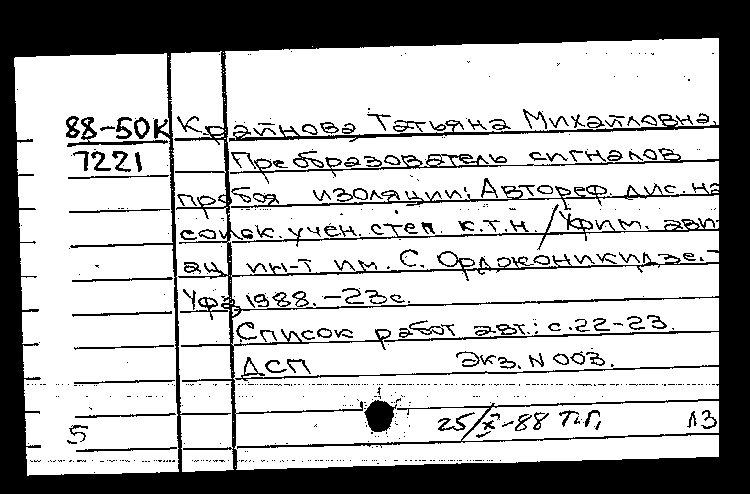 88-50К Крайнова, Татьяна Михайловна.
7221 Преобразователь сигналов
пробоя изоляции: Автореф. дис. на
соиск. учен. степ. к.т.н. / Уфим. ави-
ац. ин-т им. С. Орджоникидзе. -
Уфа, 1988. - 23с.
Список работ авт.: с. 22-23.
ДСП Экз. N 003.
5 25/X-88 Т.Г. ЛЗ